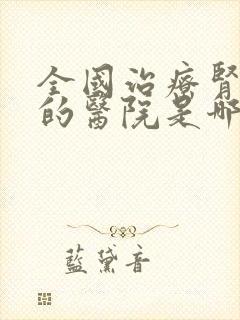 全國治療腎
的醫院是哪
藍黛音